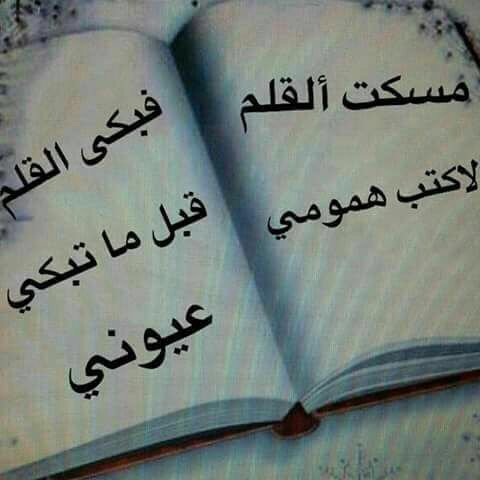 مسكت ألقلم
لاكتب همومي
فبكى القلم
قبل ما تبكي
عيوني